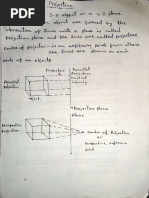 Projection
3-D object on a 2-D plane
an object are formed by the
Intersection of lines with a plane is called
projection plane and the lines are called projectors
Centre of projection is an arbitrary point from where
the lines are drawn on each
ends of an objects
Parallel
Projection
Parallel
projectors
meet at
infinity
Projection plane
Perspective
Projection
Center of Projection
or
Perspective reference
point